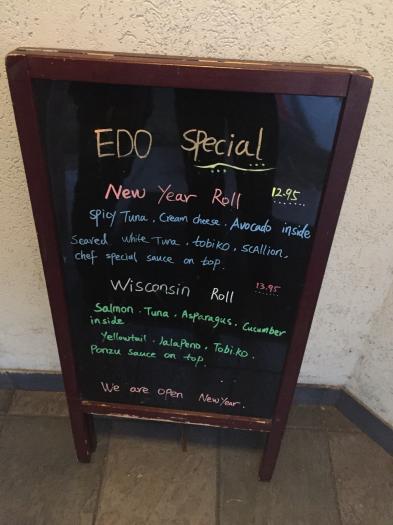 EDO Special
New Year Roll 12.95
Spicy Tuna. Cream cheese. Avocado inside
Seared white Tuna. tobiko. scallion.
chef special sauce on top.
Wisconsin Roll 13.95
Salmon. Tuna. Asparagus. Cucumber
inside
Yellowtail. Jalapeno. Tobiko.
Ponzu sauce on top.
We are open New Year.